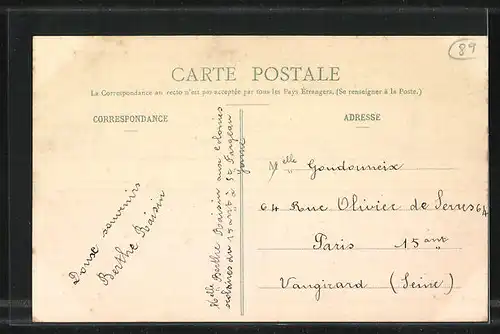 89
CARTE POSTALE
La Correspondance au recto n'est pas acceptée par tous les Pays Étrangers. (Se renseigner à la Poste.)
CORRESPONDANCE
Doux souvenirs
Berthe Raisin
Melle Berthe Raisin aux Colonies
scolaires du 15 art à St Fargeau
Yonne
ADRESSE
Melle Goudonneix
64 Rue Olivier de Serres 64
Paris 15 ant
Vaugirard (Seine)